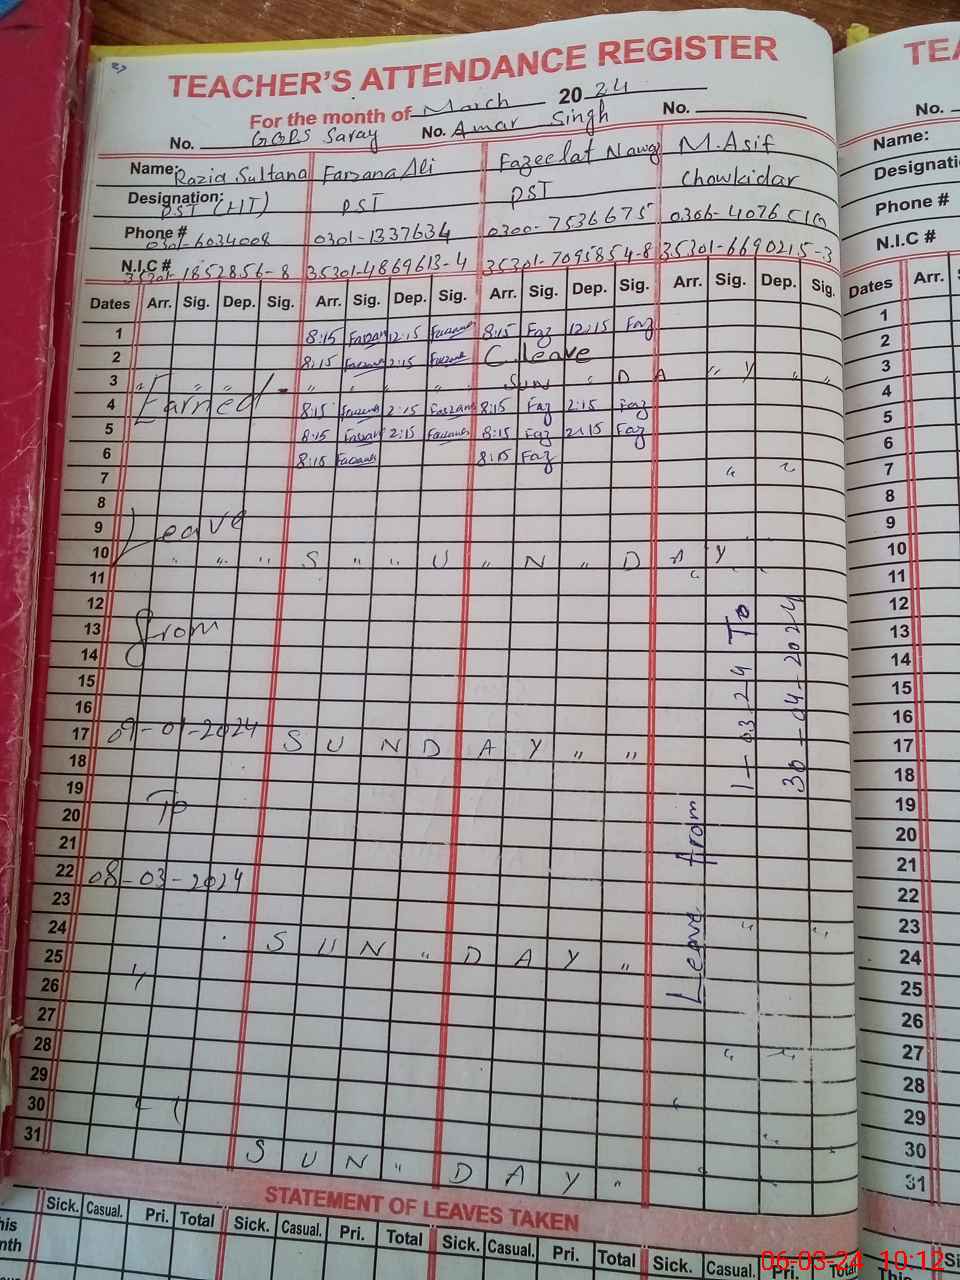 TEACHER'S ATTENDANCE REGISTER
For the month of March 2024
No. GGPS Saray No. Amar Singh No.
Name: Razia Sultana Farzana Ali Fazeelat Nawaz M. Asif
Designation: PST (HT) PST PST Chowkidar
Phone # 0301-6034008 0301-1337634 0300-7536675 0306-4076
N.I.C # 35301-1852856-8 35301-4869613-4 35301-7095854-8 35301-6690215-3
Dates Arr. Sig. Dep. Sig. Arr. Sig. Dep. Sig. Arr. Sig. Dep. Sig. Arr. Sig. Dep. Sig.
1 8:15 Farzana 12:15 Farzana 8:15 Faz 12:15 Faz
2 8:15 Farzana 2:15 Farzana C. leave
3 " " " " " " " SUN " DA " Y " "
4 Earned 8:15 Farzana 2:15 Farzana 8:15 Faz 2:15 Faz
5 8:15 Farzana 2:15 Farzana 8:15 Faz 2:15 Faz
6 8:15 Farzana 8:15 Faz
7 " "
8
9 Leave
10 " " " S " " U " N " D A Y
11
12
13 from
14
15
16
17 09-01-2024 S U N D A Y " "
18
19
20 To
21
22 08-03-2024
23
24 S U N " D A Y "
25
26
27
28
29
30
31 S U N " D A Y "
Leave from 1-03-24 To
30-04-2024
STATEMENT OF LEAVES TAKEN
Sick. Casual. Pri. Total Sick. Casual. Pri. Total Sick. Casual. Pri. Total Sick. Casual. Pri. Total
his
nth
TEA
No.
Name:
Designati
Phone #
N.I.C #
Dates Arr.
1
2
3
4
5
6
7
8
9
10
11
12
13
14
15
16
17
18
19
20
21
22
23
24
25
26
27
28
29
30
31
06-03-24 10:12